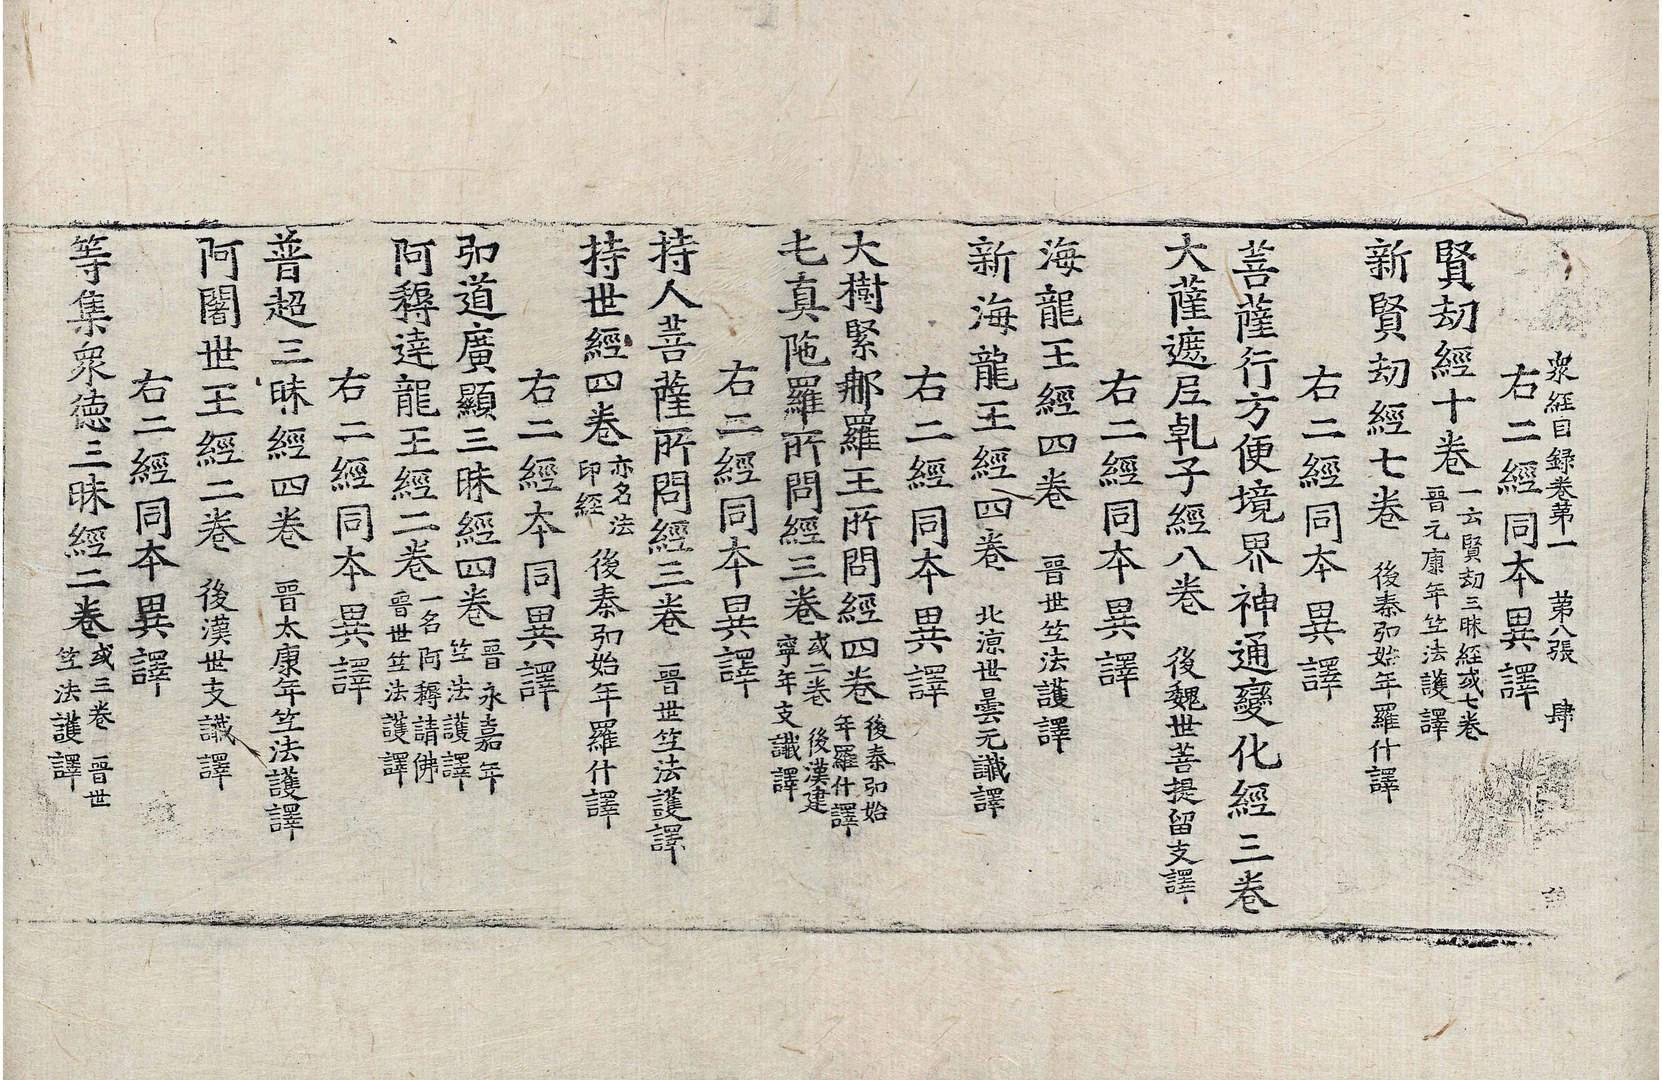 衆經目録卷苐一　苐八張　肆
右二經同本異譯
賢劫經十卷 一云賢劫三昧經或七卷 晉元康年竺法護譯
新賢劫經七卷 後秦弘始年羅什譯
右二經同本異譯
菩薩行方便境界神通變化經三卷
大薩遮尼乹子經八卷 後魏世菩提留支譯
右二經同本異譯
海龍王經四卷 晉世竺法護譯
新海龍王經四卷 北涼世曇无讖譯
右二經同本異譯
大樹緊𨚗羅王所問經四卷 後秦弘始年羅什譯
乇真陁羅所問經三卷 或二卷 後漢建寧年支讖譯
右二經同本異譯
持人菩薩所問經三卷 晉世竺法護譯
持世經四卷 亦名法印經 後秦弘始年羅什譯
右二經本同異譯
弘道廣顯三昧經四卷 晉永嘉年竺法護譯
阿耨達龍王經二卷 一名阿耨請佛 晉世竺法護譯
右二經同本異譯
普超三昧經四卷 晉太康年竺法護譯
阿闍世王經二卷 後漢世支讖譯
右二經同本異譯
等集衆德三昧經二卷 或三卷 晉世竺法護譯